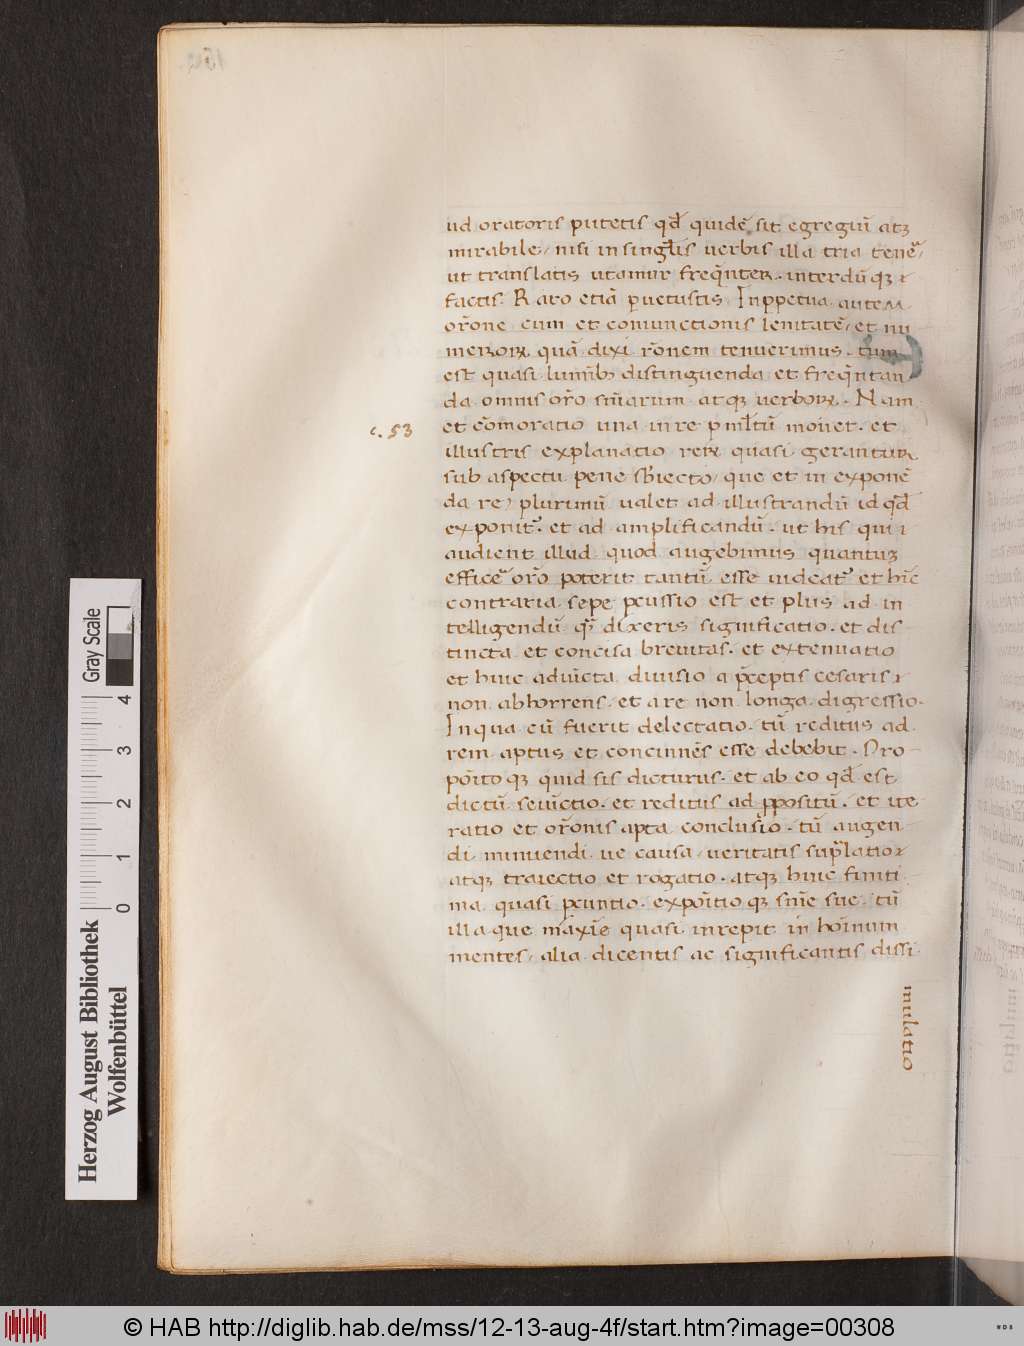 ud oratoris putetis qd̄ quidē sit egregiū atqꝫ
mirabile / nisi in singlis uerbis illa tria tenet̄ /
ut translatis utamur freq̄nter. interdūqꝫ
factis. Raro etiā ꝑuetustis. Inꝑpetua autem
orōne cum et coniunctionis lenitatē / et nu
meroꝝ quā dixi rōnem tenuerimus. tum
est quasi luminibꝫ distinguenda et freq̄ntan
da omnis orō sn̄iarum atqꝫ uerboꝝ. Nam
et cōmoratio una in re ꝑml̄tū mouet. et
c. 53
illustris explanatio reꝝ quasi gerantur
sub aspectu pene sb̄iecto / que et in exponē
da re / plurimū ualet ad illustrandū id qd̄
exponit᷑. et ad amplificandū. ut his qui
audient illud quod augebimus quantuꝫ
efficē orō poterit tantū esse uideat᷑ et hūc
contraria sepe ꝑcussio est et plus ad in
telligendū qꝫ dixeris significatio. et dis
tincta et concisa breuitas. et extenuatio
et huic adiūcta diuisio a p̄ceptis cesaris
non abhorrens. et a re non longa digressio.
In qua cū fuerit delectatio. tū reditus ad
rem aptus et concinnēs esse debebit. Pro
pōito qꝫ quid sis dicturus. et ab eo qd̄ est
dictū seiūctio. et reditus ad ꝓpositū. et ite
ratio et orōnis apta conclusio. tū augen
di minuendi ue causa / ueritatis supl̄atio
atqꝫ traiectio et rogatio. atqꝫ huic finiti
ma quasi ꝑcuntio. expōitio qꝫ sn̄ie sue. tū
illa que maxīe quasi inrepit in hoīnum
mentes / alia dicentis ac significantis dissi
mulatio
Herzog August Bibliothek
Wolfenbüttel
0 1 2 3 4
Gray Scale
© HAB http://diglib.hab.de/mss/12-13-aug-4f/start.htm?image=00308